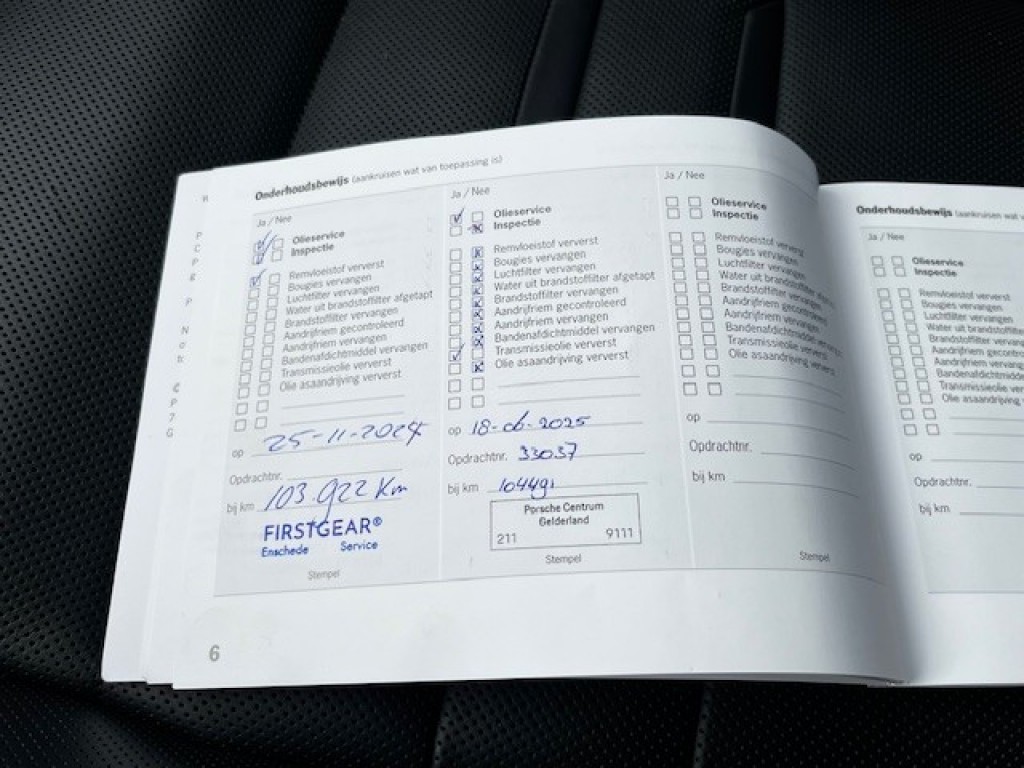 Onderhoudsbewijs (aankruisen wat van toepassing is)
Ja / Nee
Olieservice
Inspectie
Remvloeistof ververst
Bougies vervangen
Luchtfilter vervangen
Water uit brandstoffilter afgetapt
Brandstoffilter vervangen
Aandrijfriem gecontroleerd
Aandrijfriem vervangen
Bandenafdichtmiddel vervangen
Transmissieolie ververst
Olie asaandrijving ververst
op 25-11-2024
Opdrachtnr.
bij km 103.922 Km
FIRSTGEAR®
Enschede Service
Stempel
Ja / Nee
Olieservice
Inspectie
Remvloeistof ververst
Bougies vervangen
Luchtfilter vervangen
Water uit brandstoffilter afgetapt
Brandstoffilter vervangen
Aandrijfriem gecontroleerd
Aandrijfriem vervangen
Bandenafdichtmiddel vervangen
Transmissieolie ververst
Olie asaandrijving ververst
op 18-06-2025
Opdrachtnr. 33037
bij km 104491
Porsche Centrum
Gelderland
211 9111
Stempel
Ja / Nee
Olieservice
Inspectie
Remvloeistof ververst
Bougies vervangen
Luchtfilter vervangen
Water uit brandstoffilter
Brandstoffilter vervangen
Aandrijfriem gecontroleerd
Aandrijfriem vervangen
Bandenafdichtmiddel vervangen
Transmissieolie ververst
Olie asaandrijving ververst
op
Opdrachtnr.
bij km
Stempel
6
Onderhoudsbewijs (aankruisen wat v
Ja / Nee
Olieservice
Inspectie
Remvloeistof ververst
Bougies vervangen
Luchtfilter vervangen
Water uit brandstoffilter
Brandstoffilter vervan
Aandrijfriem gecontro
Aandrijfriem vervang
Bandenafdichtmiddel
Transmissieolie verv
Olie asaandrijving v
op
Opdrachtnr.
bij km